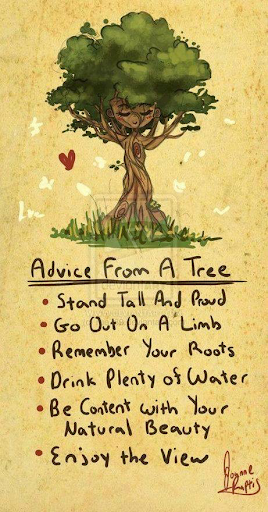 Advice From A Tree
• Stand Tall And Proud
• Go Out On A Limb
• Remember Your Roots
• Drink Plenty of Water
• Be Content with Your
Natural Beauty
• Enjoy the View
Joanne